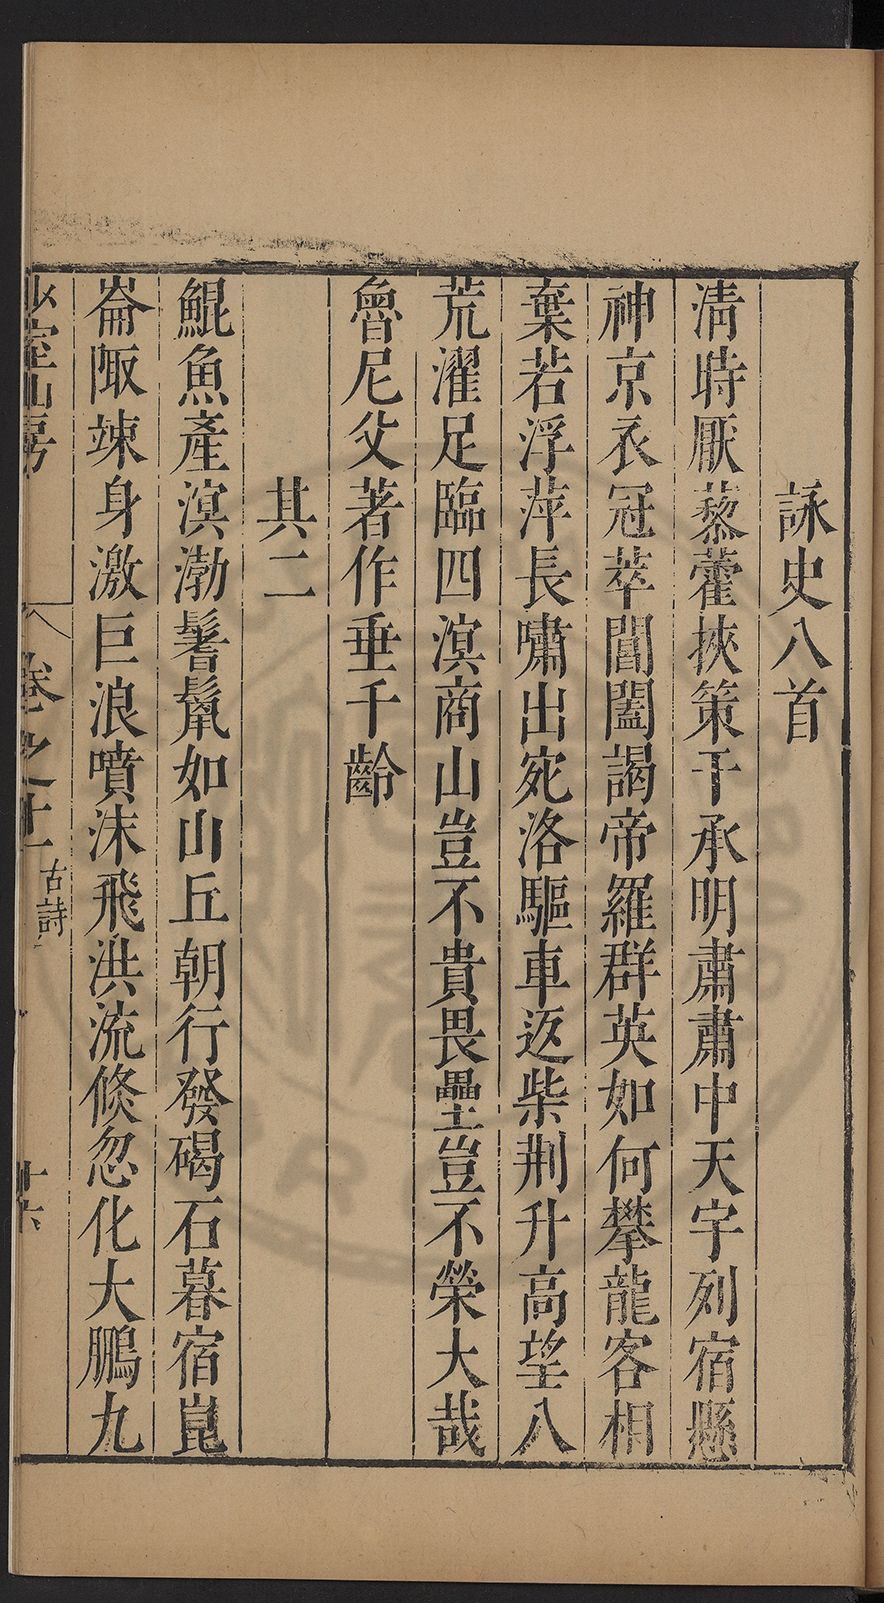 詠史八首
清時厭藜藿挾策干承明肅肅中天宇列宿懸
神京衣冠萃閶闔謁帝羅群英如何攀龍客相
棄若浮萍長嘯出宛洛驅車返柴荆升高望八
荒濯足臨四溟商山豈不貴畏壘豈不榮大哉
魯尼父著作垂千齡
其二
鯤魚產溟渤鬐鬣如山丘朝行發碣石暮宿崑
崙陬竦身激巨浪噴沫飛洪流倐忽化大鵬九
少室山房
卷之十一
古詩
十六